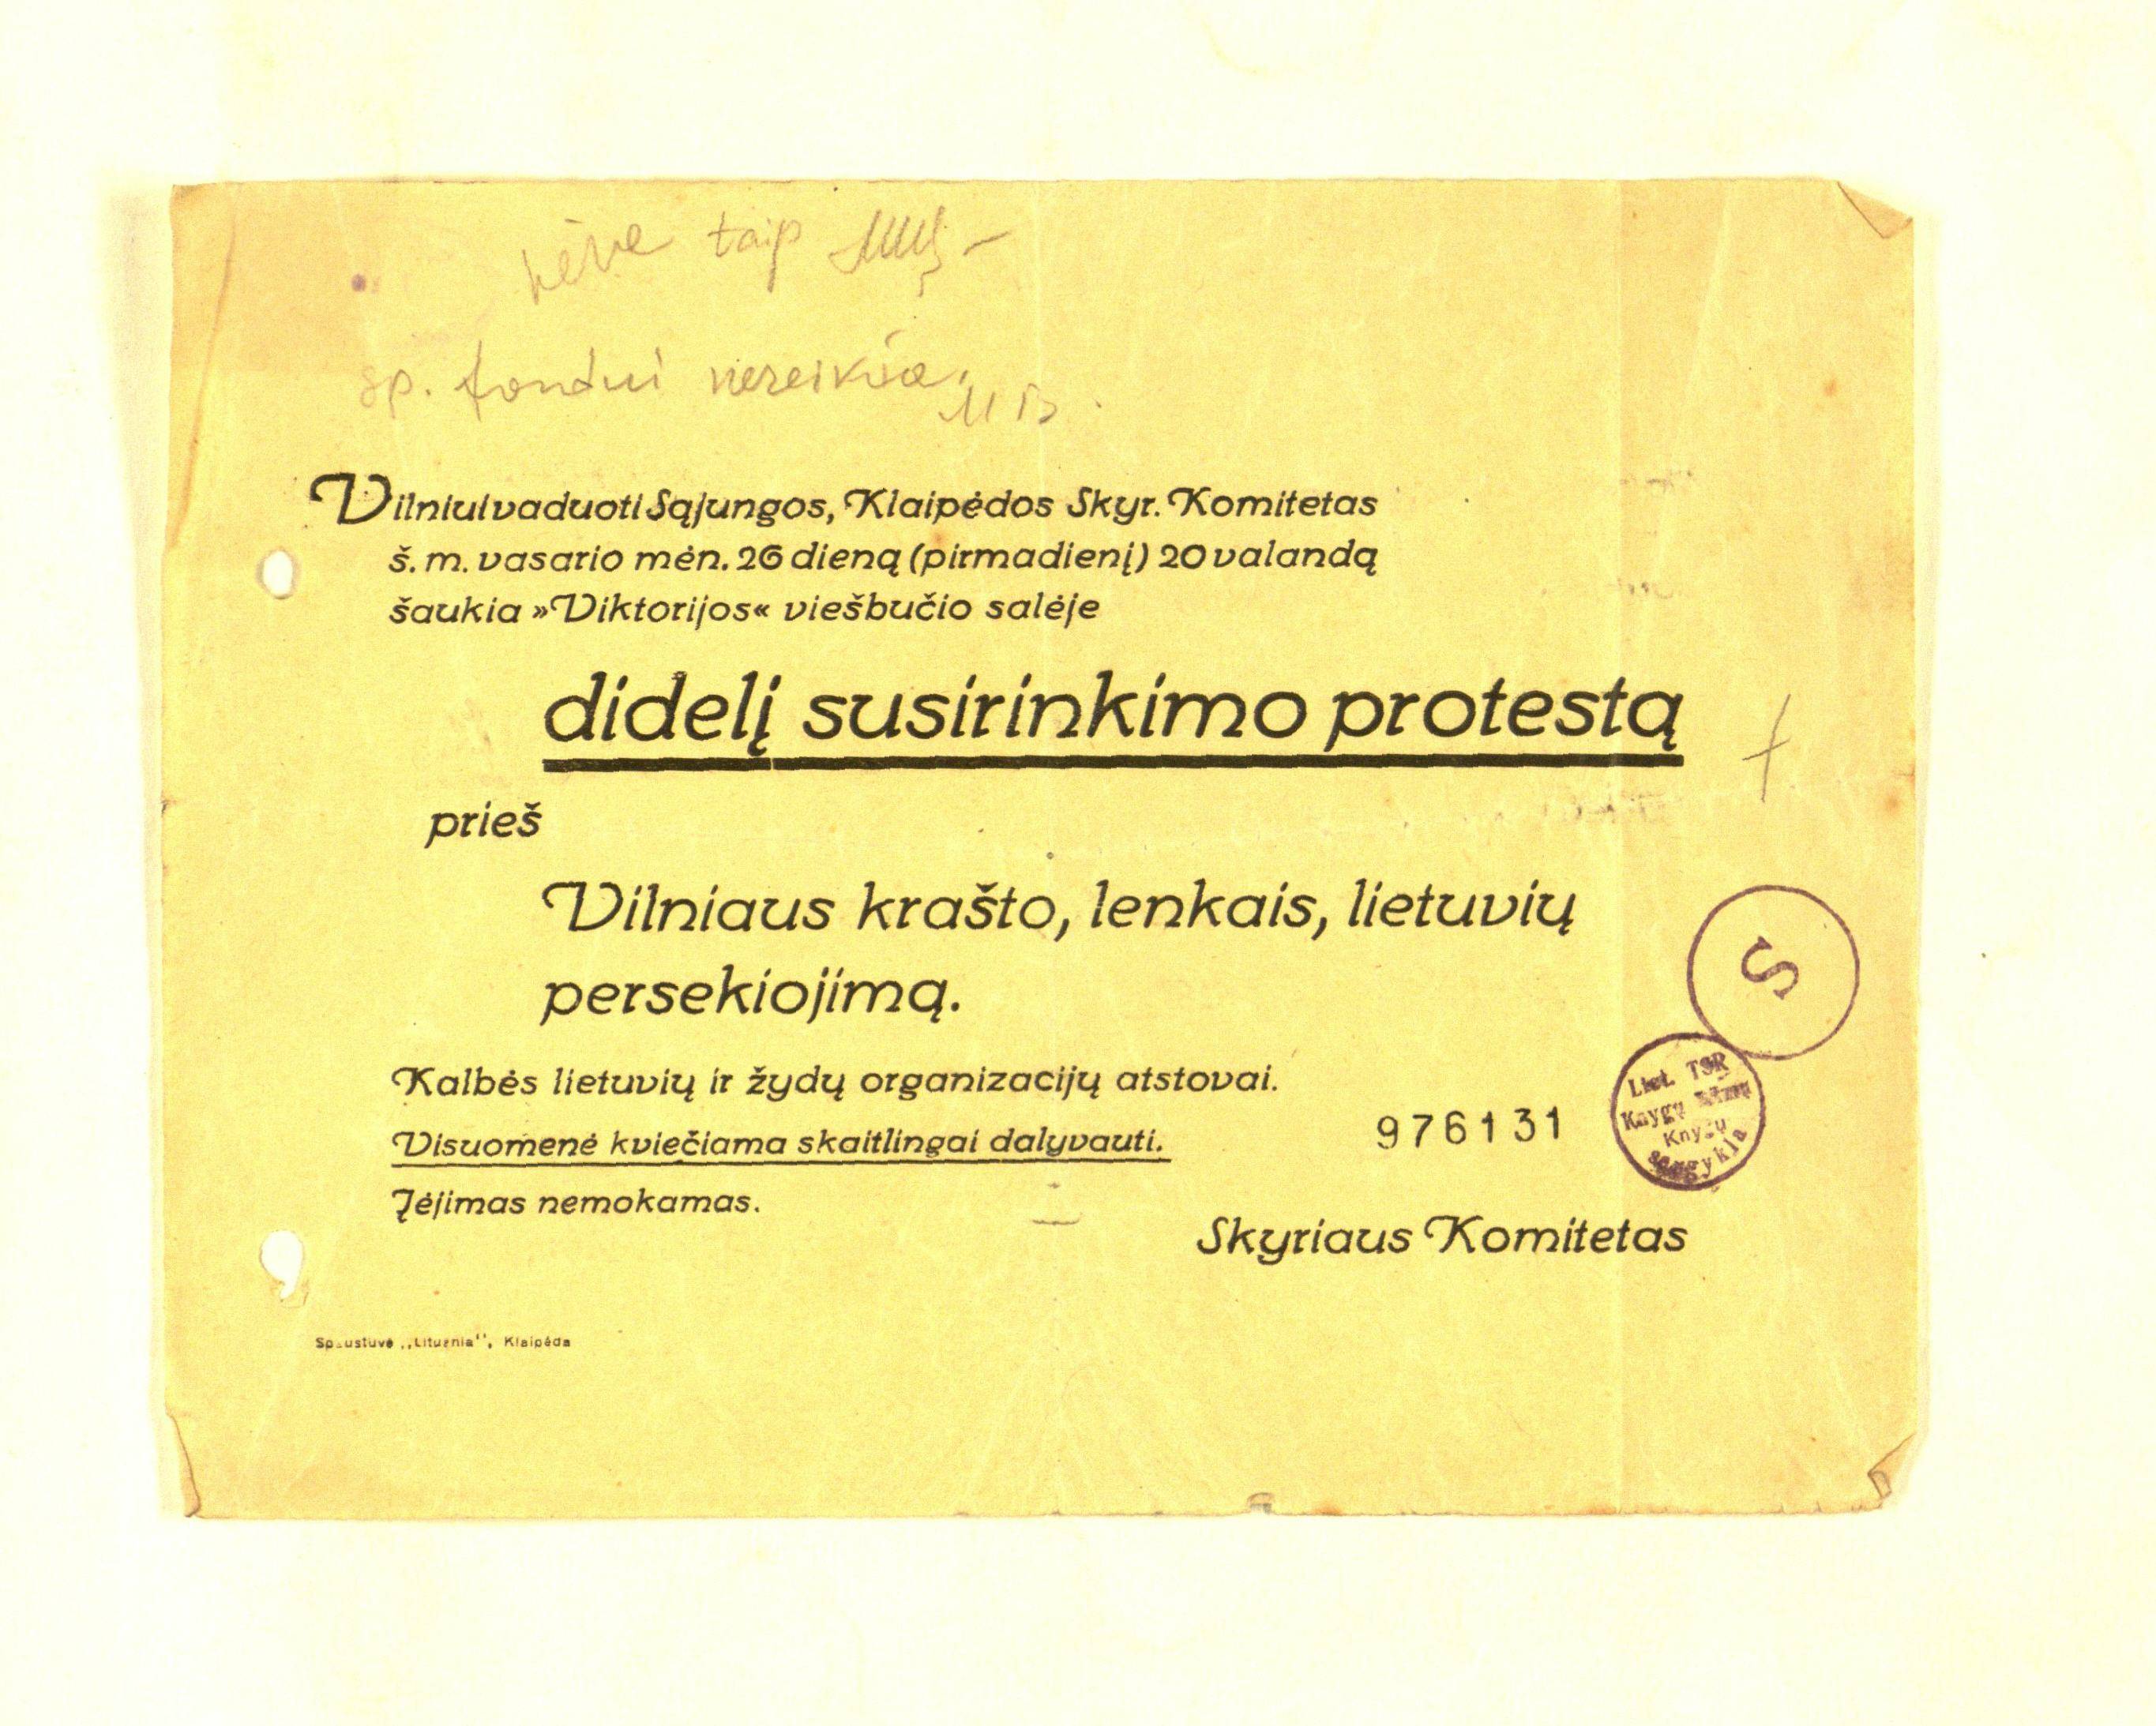 taip
sp. fondui nereikia.
Vilniui vaduoti Sąjungos, Klaipėdos Skyr. Komitetas
š. m. vasario mėn. 26 dieną (pirmadienį) 20 valandą
šaukia »Viktorijos« viešbučio salėje
didelį susirinkimo protestą
prieš
Vilniaus krašto, lenkais, lietuvių
persekiojimą.
Kalbės lietuvių ir žydų organizacijų atstovai.
Visuomenė kviečiama skaitlingai dalyvauti.
Įėjimas nemokamas.
976131
S
Liet. TSR
Knygų
Knygų
saugykla
Skyriaus Komitetas
Spaustuvė „Lituania", Klaipėda